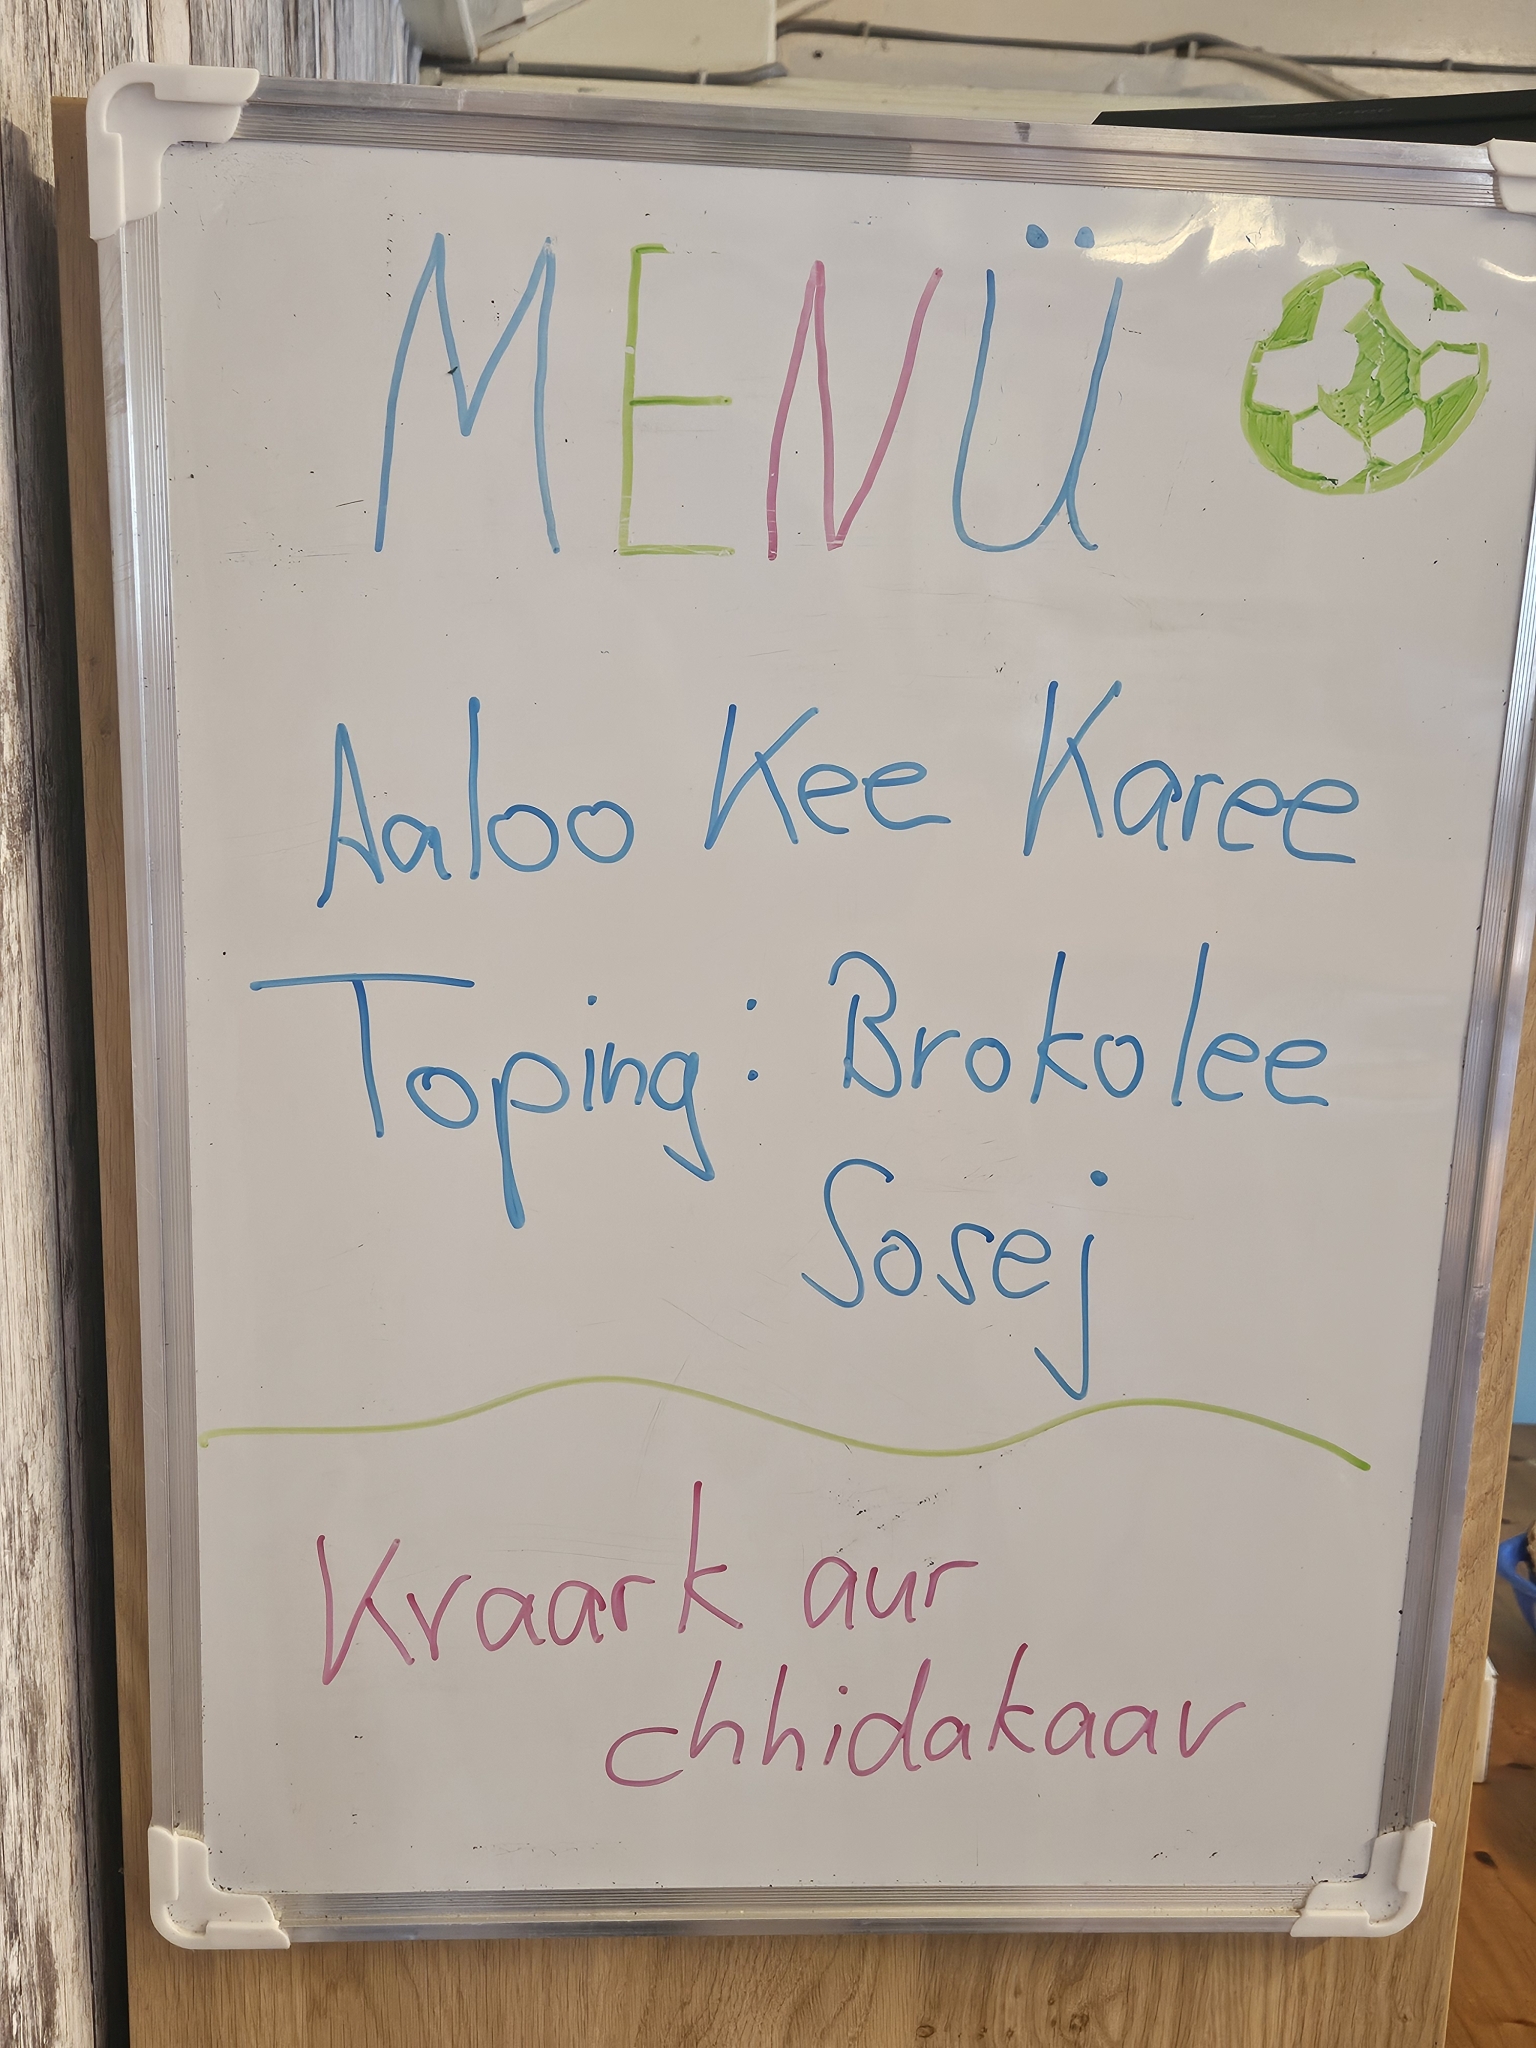 MENÜ
Aaloo Kee Karee
Toping: Brokolee
Sosej
Kraark aur
chhidakaav